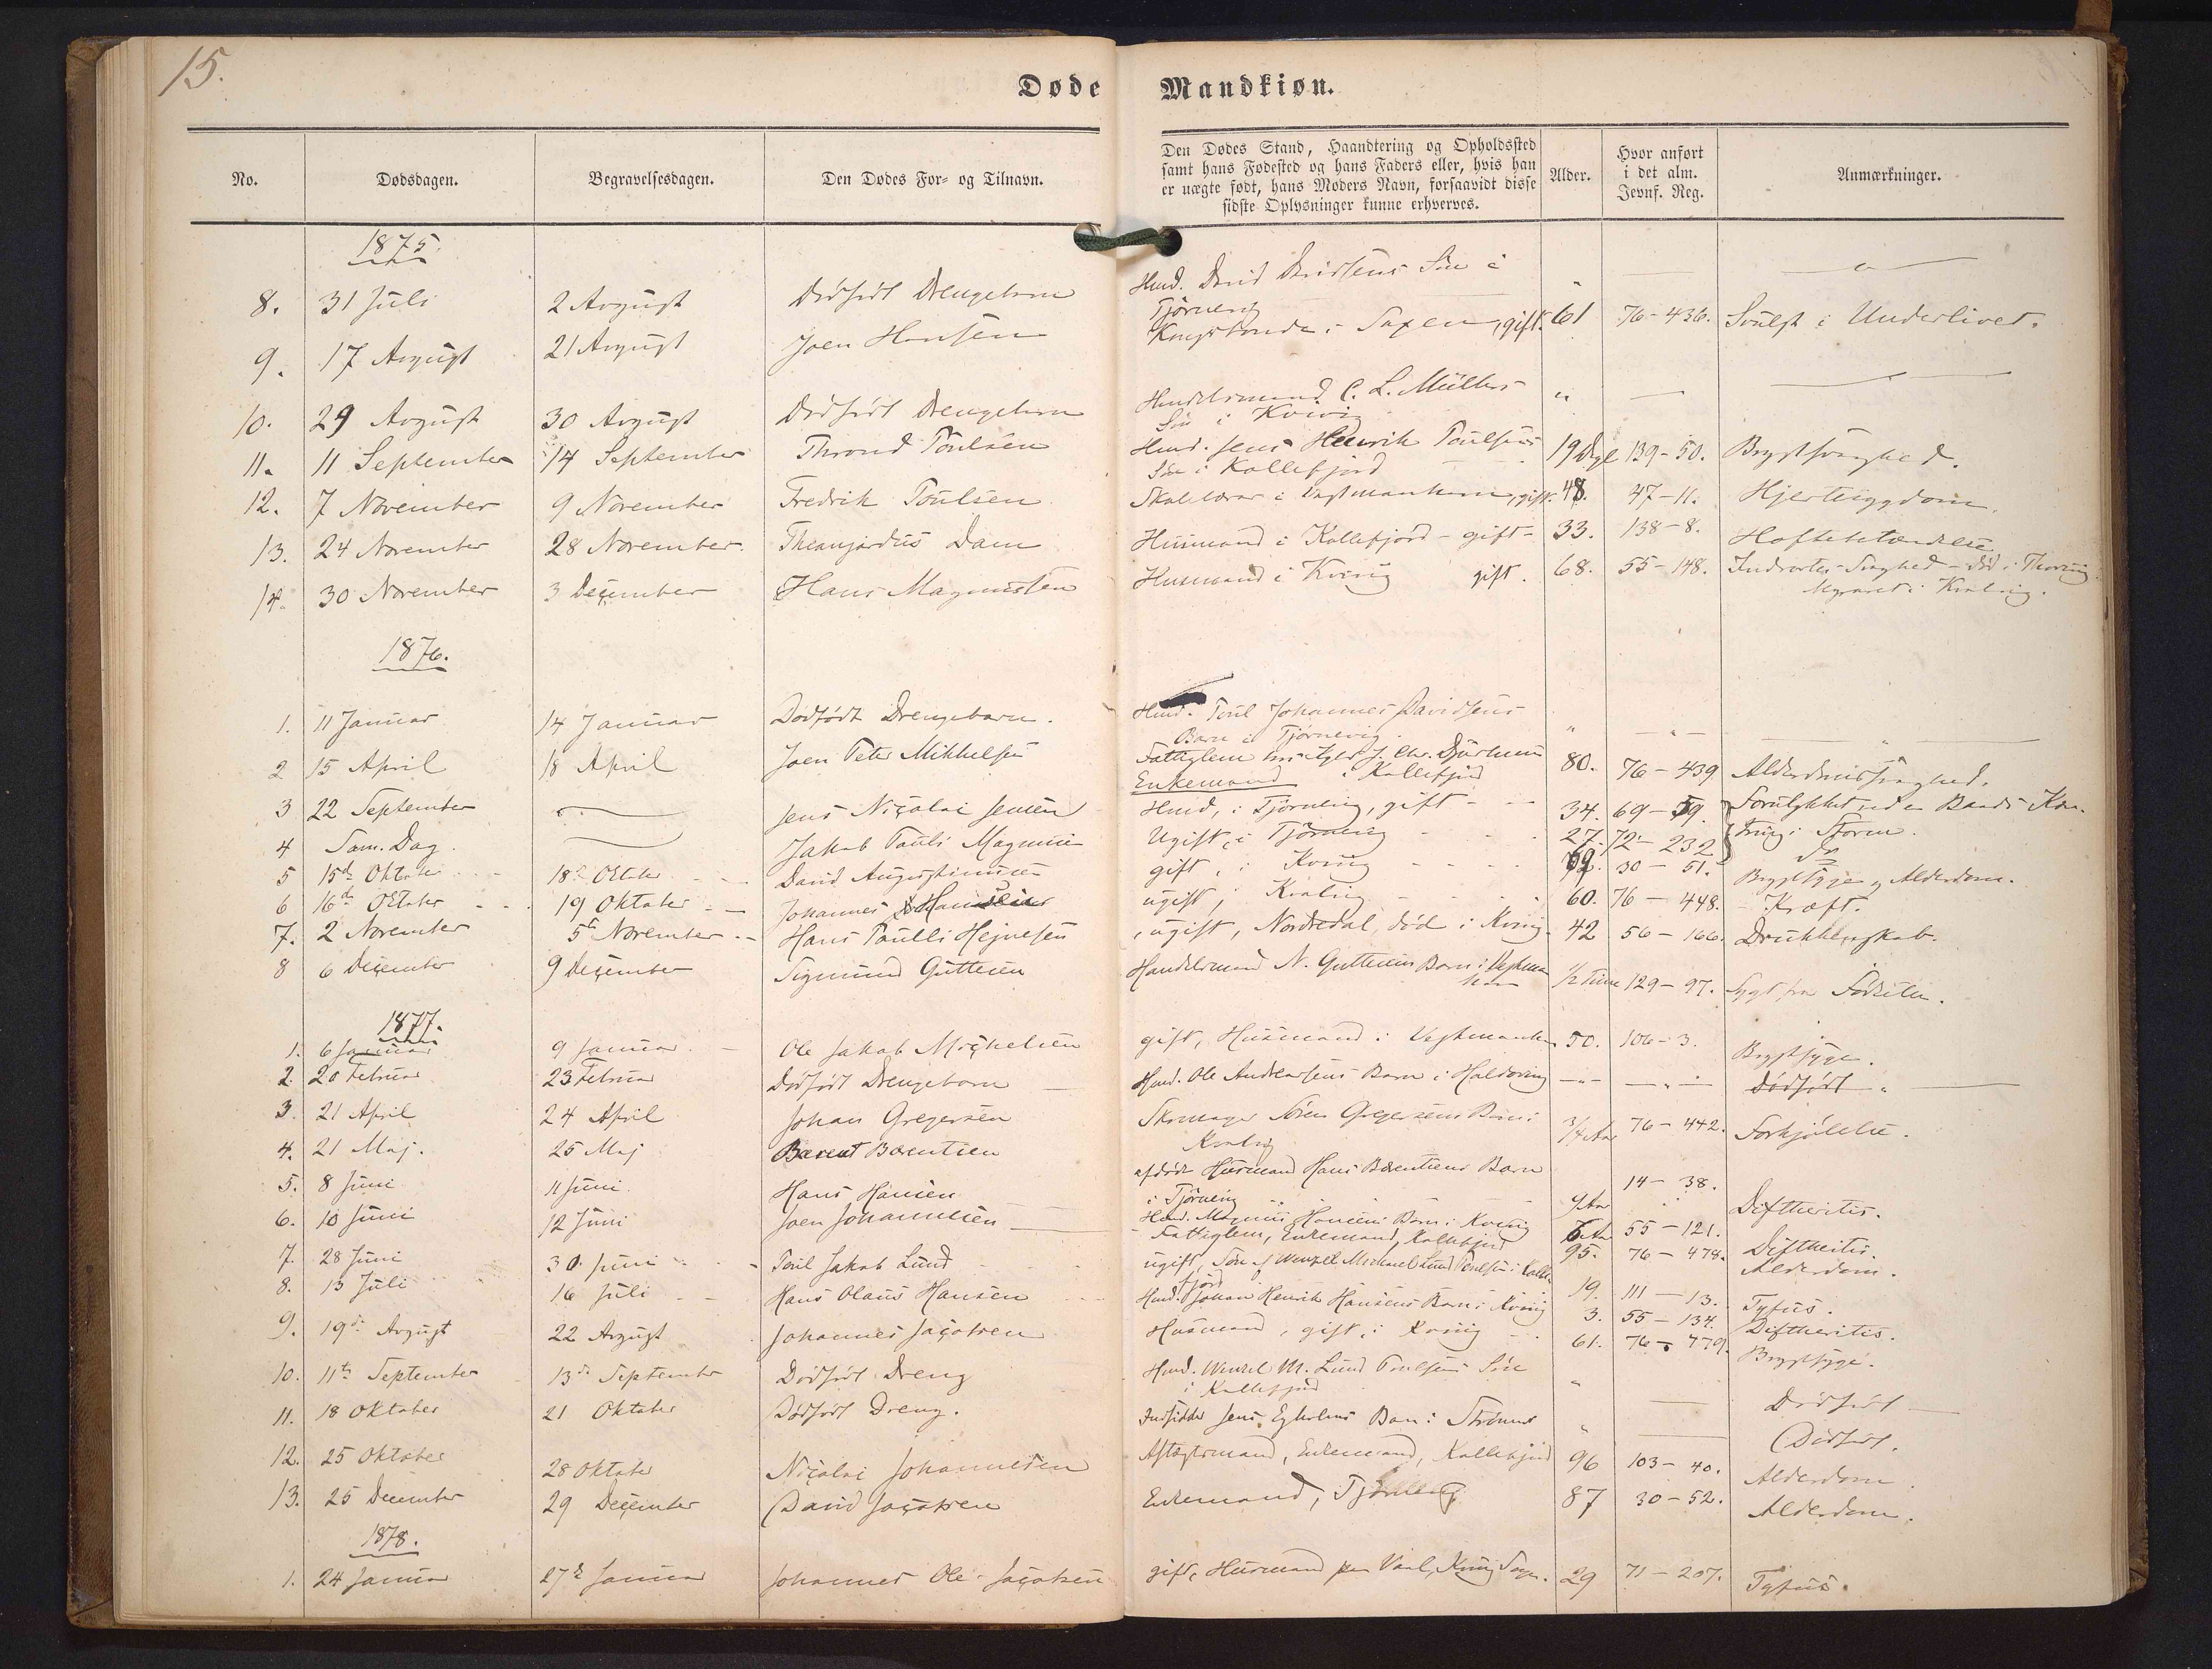 15.
Døde Mandkiøn.
No. Dødsdagen. Begravelsesdagen. Den Dødes For- og Tilnavn. Den Dødes Stand, Haandtering og Opholdssted samt hans Fødested og hans Faders eller, hvis han er uægte født, hans Moders Navn, forsaavidt disse sidste Oplysninger kunne erhverves. Alder. Hvor anført i det alm. Jevnf. Reg. Anmærkninger.
1875.
8. 31 Juli 2 Avgust Dødfødt Drengebarn Husmd. David Davidsens Søn i Tjørnevig
9. 17 Avgust 21 Avgust Joen Hansen Kongsbonde i Saxen, gift. 61 76-436. Svulst i Underlivet.
10. 29 Avgust 30 Avgust Dødfødt Drengebarn Handelsmand C. L. Müllers Søn i Kvivig
11. 11 September 14 September Thrond Poulsen Husmd. Jens Henrik Poulsens Søn i Kollefjord 19 Dage 139-50. Brystsvaghed.
12. 7 November 9 November Fredrik Poulsen Skolelærer i Vestmanhavn, gift. 48. 47-11. Hjertesygdom.
13. 24 November 28 November Dam Husmand i Kollefjord - gift - 33. 138-8. Hoftebetændelse
14. 30 November 3 December Hans Magnussen Husmand i Kvivig gift. 68. 55-148. Indvortes Svaghed - død i
1876.
1. 11 Januar 14 Januar Dødfødt Drengebarn. Husmd. Poul Johannes Davidsens Barn i Tjørnevig.
2 15 April 18 April Joen Peter Mikkelsen Fattiglem J. Chr. Djurhuus Enkemand i Kollefjord 80. 76-439 Alderdomssvaghed.
3 22 September Jens Nicolai Jensen Husmd, i Tjørnevig, gift - 34. 69-59. Forulykket ved en Baads Kæntring i Storm.
4 Sam. Dag. Jakob Pauli Magnussen Ugift, i Tjørnevig 27. 72-232 Do
5 15de Oktober 18de Oktober David Augustinussen gift, i Kvivig 30-51. Brystsyge og Alderdom.
6 16de Oktober 19 Oktober Johannes Hansen ugift, Kvalvig 60. 76-448. Kræft.
7. 2 November 5te November Hans Paulli Hejnesen ugift, Nordredal, død i Kvivig. 42 56-166. Drukkenskab.
8 6 December 9 December Sigmund Guttesen Handelsmand N. Guttesens Barn i Vestmanhavn 1/2 Time 129-97. Sygt fra Fødselen.
1877.
1. 6 Januar 9 Januar Ole Jakob Michelsen gift, Husmand i Vestmanhavn 50. 106-3. Brystsyge.
2. 20 Februar 23 Februar Dødfødt Drengebarn Husmd. Ole Andreasens Barn i Haldorsvig Dødfødt
3. 21 April 24 April Johan Gregersen Skomager Sören Gregersens Barn i Kvalvig 3/4 Aar 76-442. Forkjølelse.
4. 21 Maj. 25 Maj Barent Bærentsen afdøde Husmand Hans Bærentsens Barn i Tjørnevig 9 Aar 14-38. Diftheritis.
5. 8 Juni 11 Juni Hans Hansen Husmd. Magnus Hansens Barn i Kvivig 55-121. Diftheritis.
6. 10 Juni 12 Juni Joen Johannesen Fattiglem, Enkemand, Kollefjord 95. 76-478. Alderdom.
7. 28 Juni 30. Juni Poul Jakob Lund ugift, Søn af Wenzel Michael Lund Poulsen i Kollefjord 19. 111-13. Tyfus.
8. 13 Juli 16 Juli Hans Olaus Hansen Husmd. Johan Henrik Hansens Barn i Kvivig 3. 55-134. Diftheritis.
9. 19de Avgust 22 Avgust Johannes Jacobsen Husmand, gift, i Kvivig 61. 76-479. Brystsyge.
10. 11te September 13de September Dødfødt Dreng Husmd. Wenzel M. Lund Poulsens Søn i Kollefjord Dødfødt
11. 18 Oktober 21 Oktober Dødfødt Dreng. Indsidder Jens Egholms Barn i Strømnes Dødfødt.
12. 25 Oktober 28 Oktober Nicolai Johannesen Aftægtsmand, Enkemand, Kollefjord 96 103-40. Alderdom
13. 25 December 29 December David Jacobsen Enkemand, Tjørnevig 87 30-52. Alderdom.
1878.
1. 24 Januar 27de Januar Johannes Ole Jacobsen gift, Husmand paa Vaal, Kvivig Sogn. 29 71-207. Tyfus.